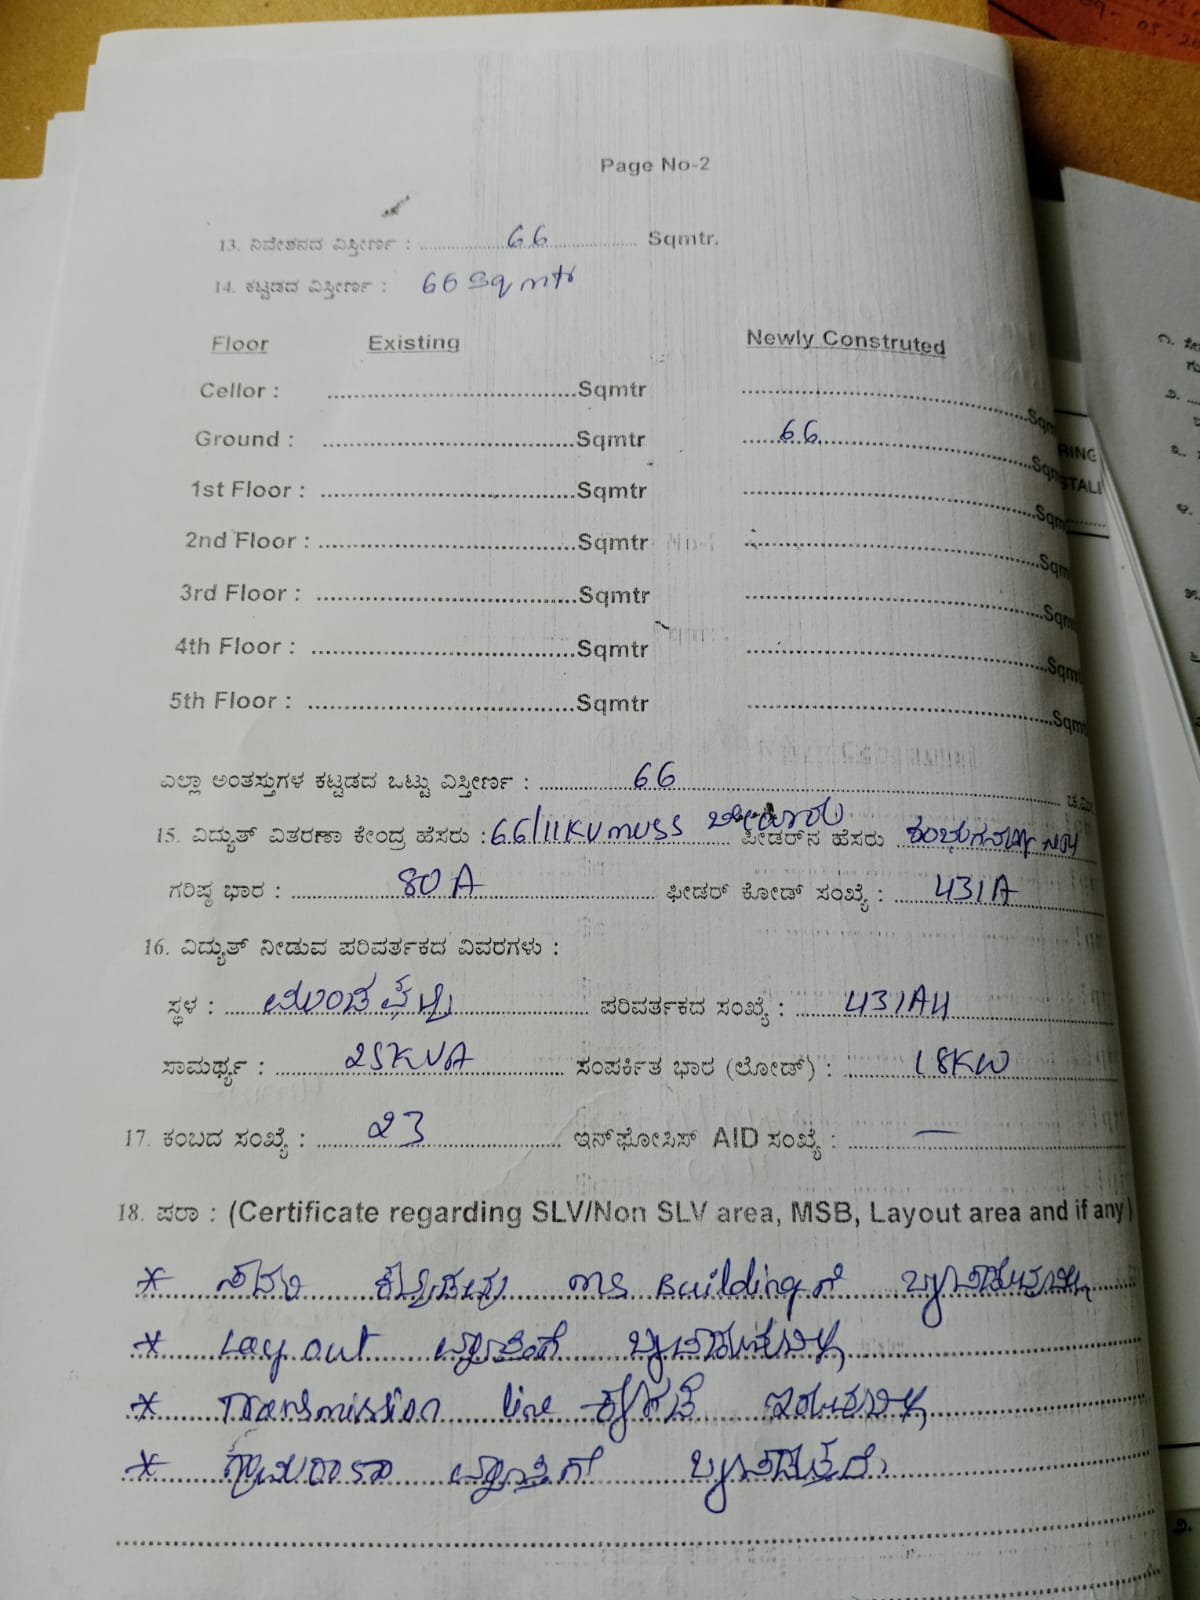 Page No-2
13. ನಿವೇಶನದ ವಿಸ್ತೀರ್ಣ : 66 Sqmtr.
14. ಕಟ್ಟಡದ ವಿಸ್ತೀರ್ಣ : 66 Sqmtr
Floor Existing Newly Construted
Cellor : Sqmtr Sqm
Ground : Sqmtr 66 Sqm
1st Floor : Sqmtr Sqm
2nd Floor : Sqmtr Sqm
3rd Floor : Sqmtr Sqm
4th Floor : Sqmtr Sqmt
5th Floor : Sqmtr Sqmt
ಎಲ್ಲಾ ಅಂತಸ್ತುಗಳ ಕಟ್ಟಡದ ಒಟ್ಟು ವಿಸ್ತೀರ್ಣ : 66 ಚ.ಮೀ
15. ವಿದ್ಯುತ್ ವಿತರಣಾ ಕೇಂದ್ರ ಹೆಸರು : 66/11KV MUSS ಫೀಡರ್‌ನ ಹೆಸರು
ಗರಿಷ್ಠ ಭಾರ : 80 A ಫೀಡರ್ ಕೋಡ್ ಸಂಖ್ಯೆ : 431A
16. ವಿದ್ಯುತ್ ನೀಡುವ ಪರಿವರ್ತಕದ ವಿವರಗಳು :
ಸ್ಥಳ : ಪರಿವರ್ತಕದ ಸಂಖ್ಯೆ : 431A4
ಸಾಮರ್ಥ್ಯ : 25KVA ಸಂಪರ್ಕಿತ ಭಾರ (ಲೋಡ್) : 18KW
17. ಕಂಬದ ಸಂಖ್ಯೆ : 23 ಇನ್‌ಫೋಸಿಸ್ AID ಸಂಖ್ಯೆ : —
18. ಷರಾ : (Certificate regarding SLV/Non SLV area, MSB, Layout area and if any)
* ಸದರಿ ಕಟ್ಟಡವು MS Buildingಗೆ ಒಳಪಡುವುದಿಲ್ಲ
* Layout ವ್ಯಾಪ್ತಿಗೆ ಒಳಪಡುವುದಿಲ್ಲ
* Transmission line ಕೆಳಗಡೆ ಇರುವುದಿಲ್ಲ
* ವ್ಯಾಪ್ತಿಗೆ ಒಳಪಡುತ್ತದೆ.
RING
STALI